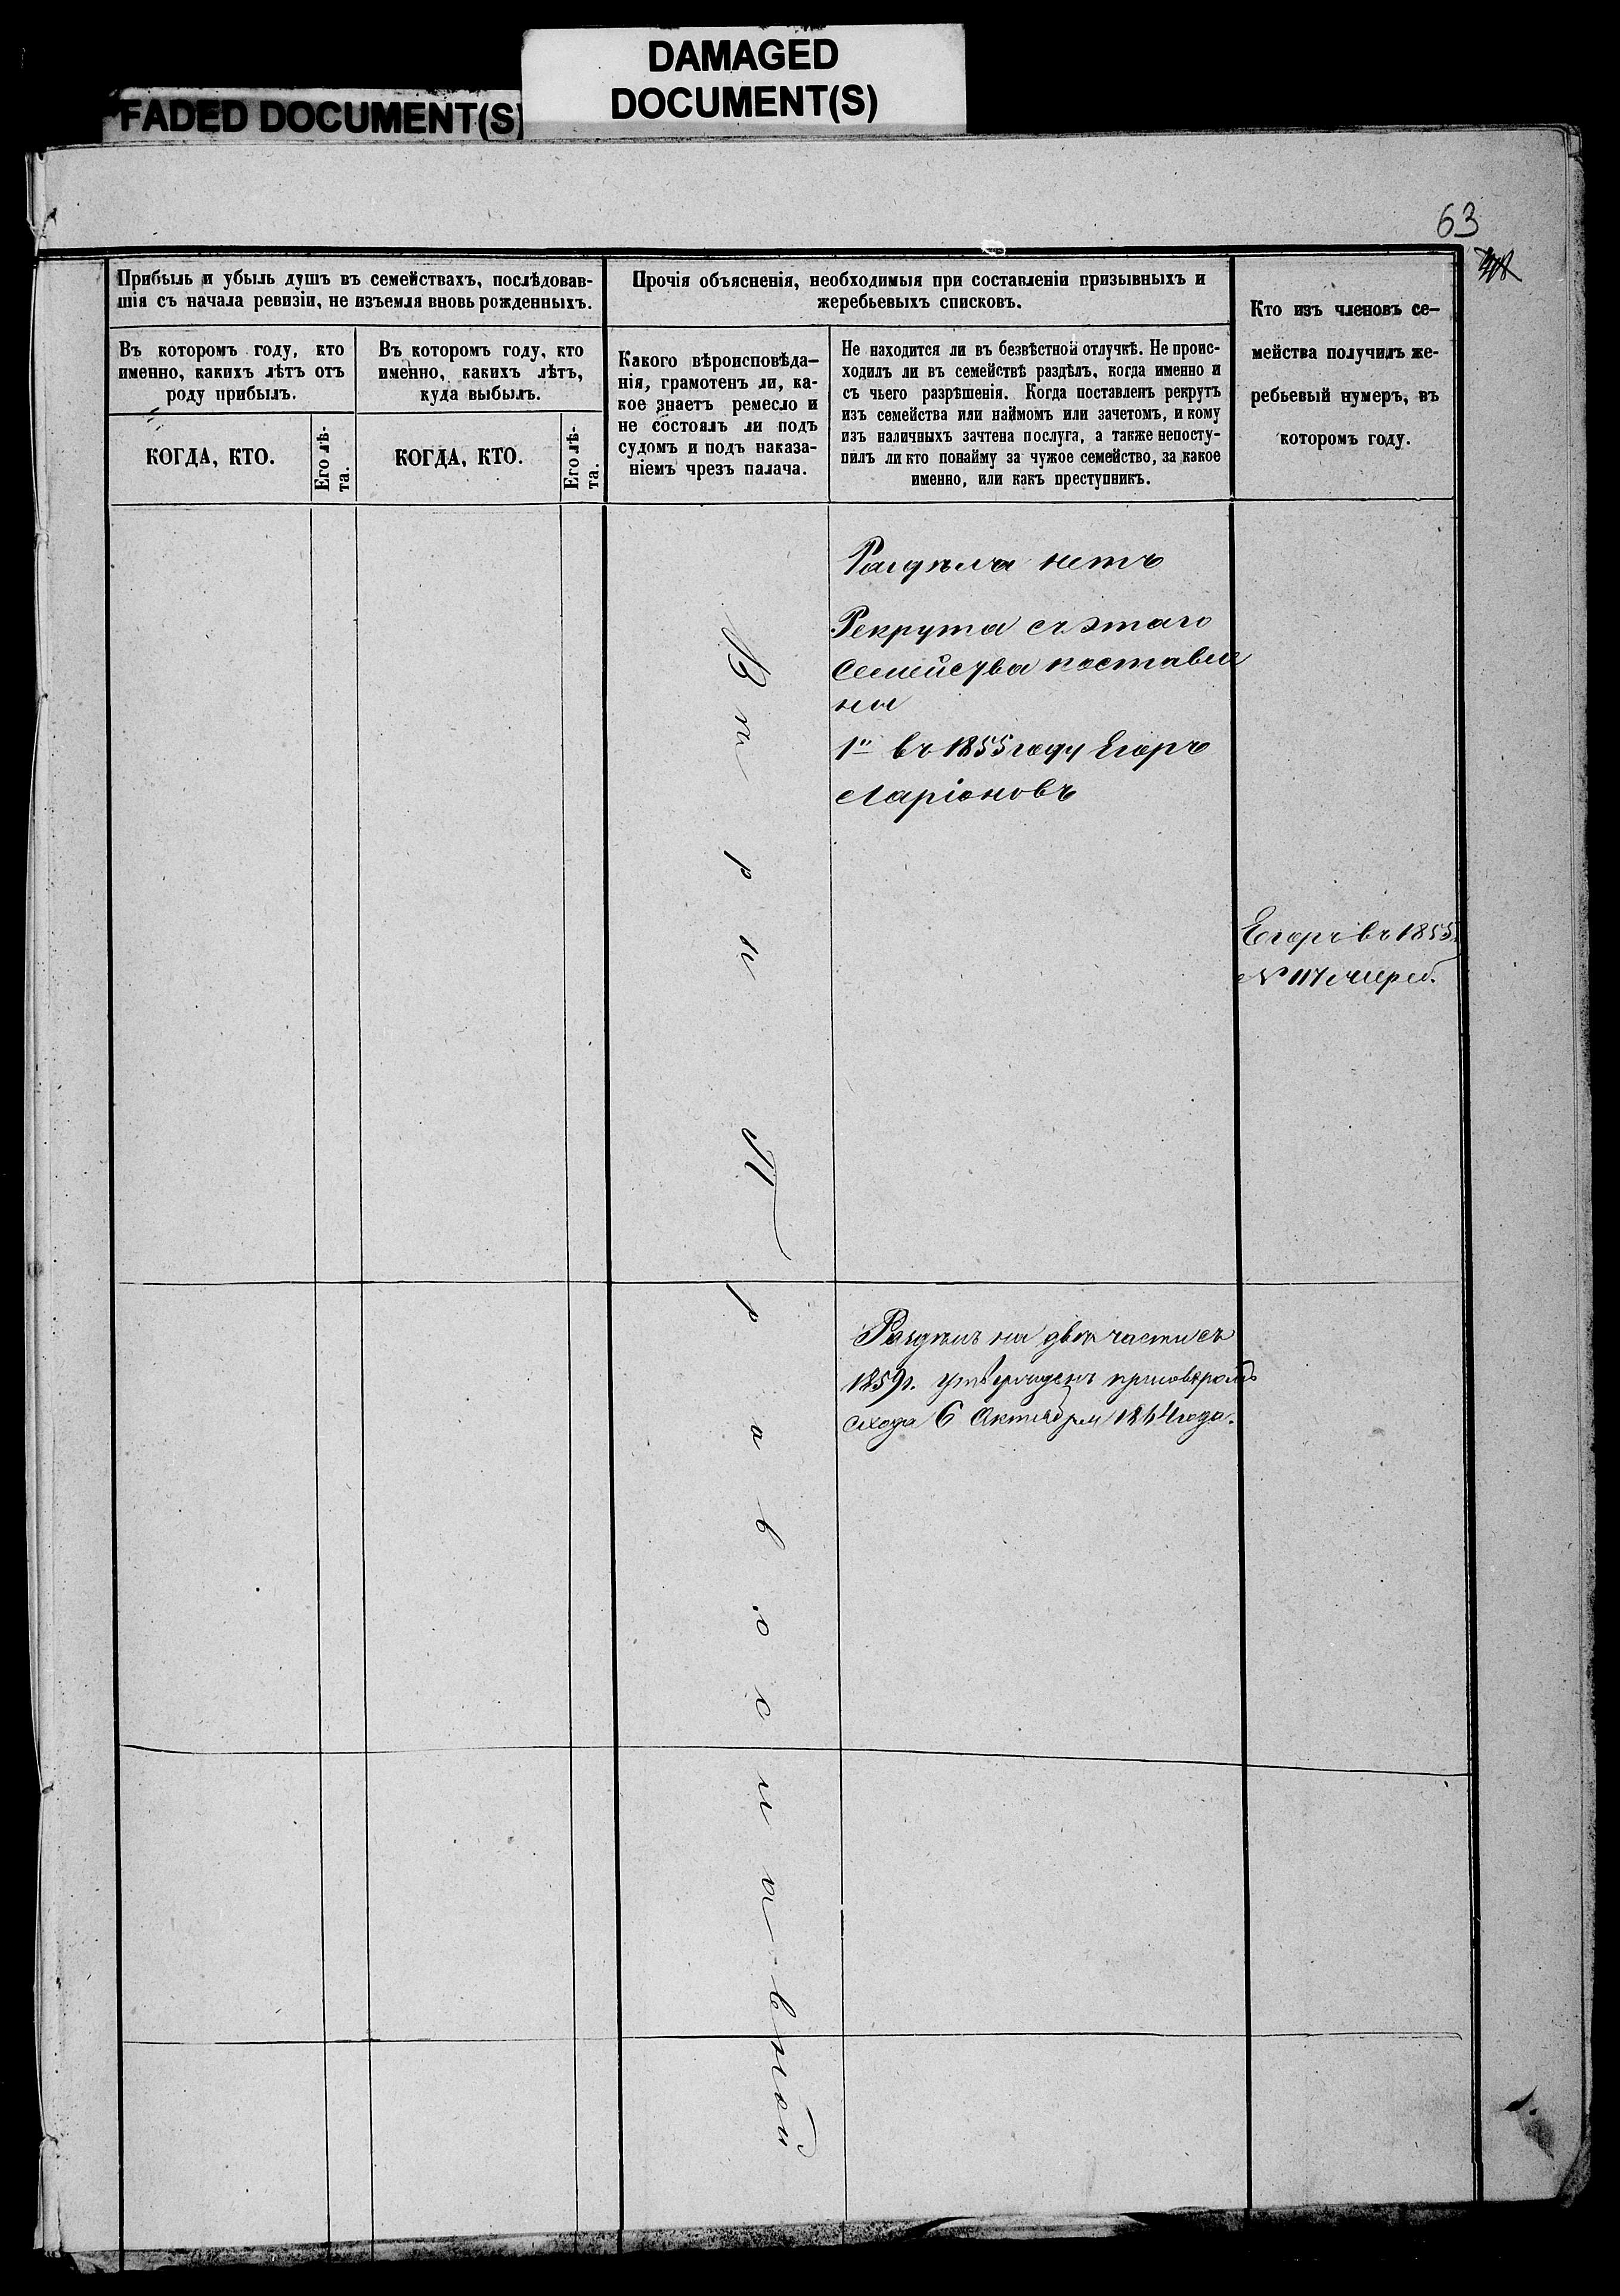 DAMAGED
DOCUMENT(S)
FADED DOCUMENT(S)
63
Прибыль и убыль душъ въ семействахъ, послѣдовав-
шія съ начала ревизіи, не изъемля вновь рожденныхъ.
Въ которомъ году, кто
именно, какихъ лѣтъ отъ
роду прибылъ.
КОГДА, КТО.
Его лѣ-
та.
Въ которомъ году, кто
именно, какихъ лѣтъ,
куда выбылъ.
КОГДА, КТО.
Его лѣ-
та.
Прочія объясненія, необходимыя при составленіи призывныхъ и
жеребьевыхъ списковъ.
Какого вѣроисповѣда-
нія, грамотенъ ли, ка-
кое знаетъ ремесло и
не состоялъ ли подъ
судомъ и подъ наказа-
ніемъ чрезъ палача.
Не находится ли въ безвѣстной отлучкѣ. Не проис-
ходилъ ли въ семействѣ раздѣлъ, когда именно и
съ чьего разрѣшенія. Когда поставленъ рекрутъ
изъ семейства или наймомъ или зачетомъ, и кому
изъ наличныхъ зачтена послуга, а также непосту-
пилъ ли кто понайму за чужое семейство, за какое
именно, или какъ преступникъ.
Кто изъ членовъ се-
мейства получилъ же-
ребьевый нумеръ, въ
которомъ году.
Раздѣла нетъ
Рекрута съ этаго
Семейства поставле
на
1й въ 1855 году Егоръ
Ларіоновъ
Егоръ въ 1855
№ 117 жереб.
Раздѣлъ на двѣ части съ
1859г. утвержденъ приговоромъ
схода 6 Октября 1864 года.
Православной